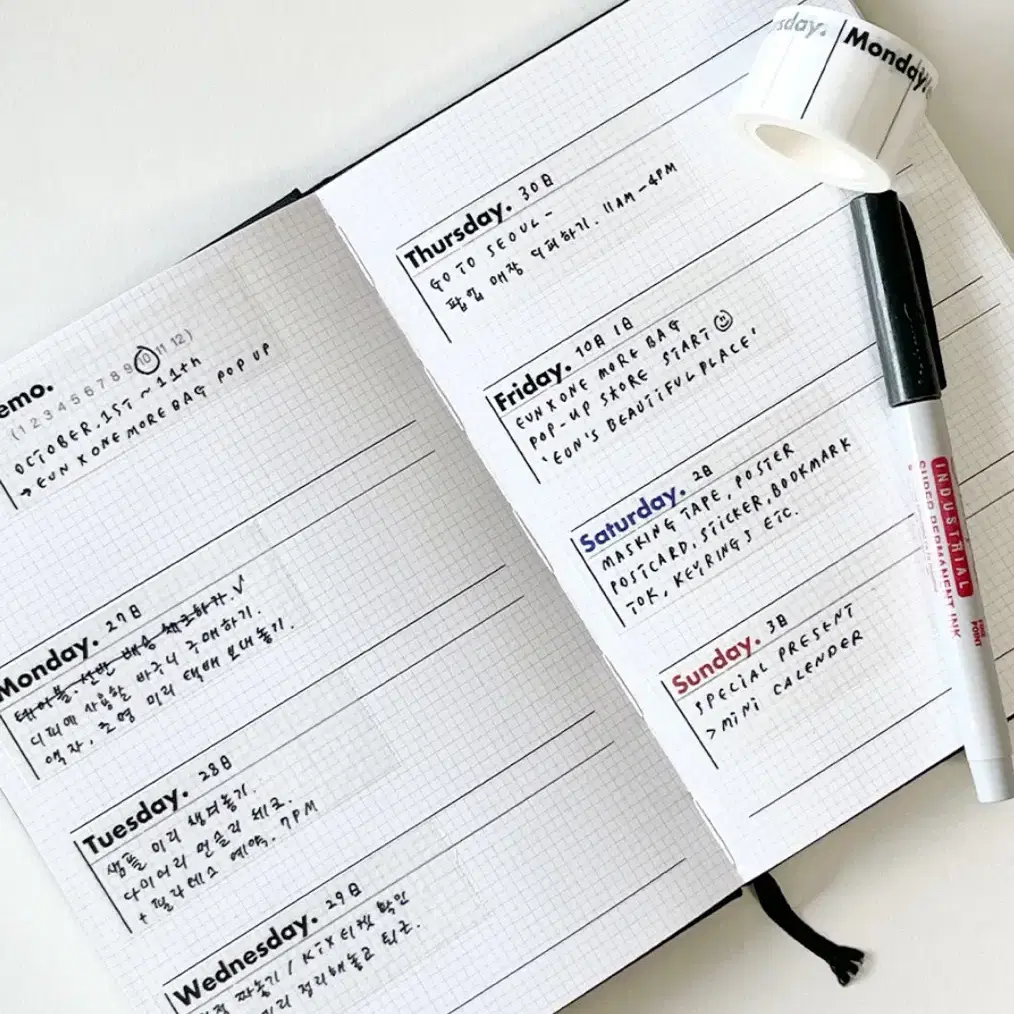 emo.
(1 2 3 4 5 6 7 8 9 10 11 12)
OCTOBER. 1ST ~ 11th
→ EUN X ONE MORE BAG POP UP
Monday. 27日
테이블. 선반 배송 체크하기. V
디피에 사용할 바구니 구매하기.
액자. 조명 미리 택배 보내놓기.
Tuesday. 28日
샘플 미리 챙겨놓기.
다이어리 먼슬리 체크.
+ 필라테스 예약. 7PM
Wednesday. 29日
짜놓기 / KTX 티켓 확인
미리 정리해놓고 퇴근.
Thursday. 30日
GO TO SEOUL -
팝업 매장 디피하기. 11AM - 4PM
Friday. 10日 1日
EUN X ONE MORE BAG
POP-UP STORE START
'EUN'S BEAUTIFUL PLACE'
Saturday. 2日
MASKING TAPE, POSTER
POSTCARD, STICKER, BOOKMARK
TOK, KEYRINGS ETC.
Sunday. 3日
SPECIAL PRESENT
> MINI CALENDER
sday.
Monday.
INDUSTRIAL
SUPER PERMANENT INK
FINE POINT